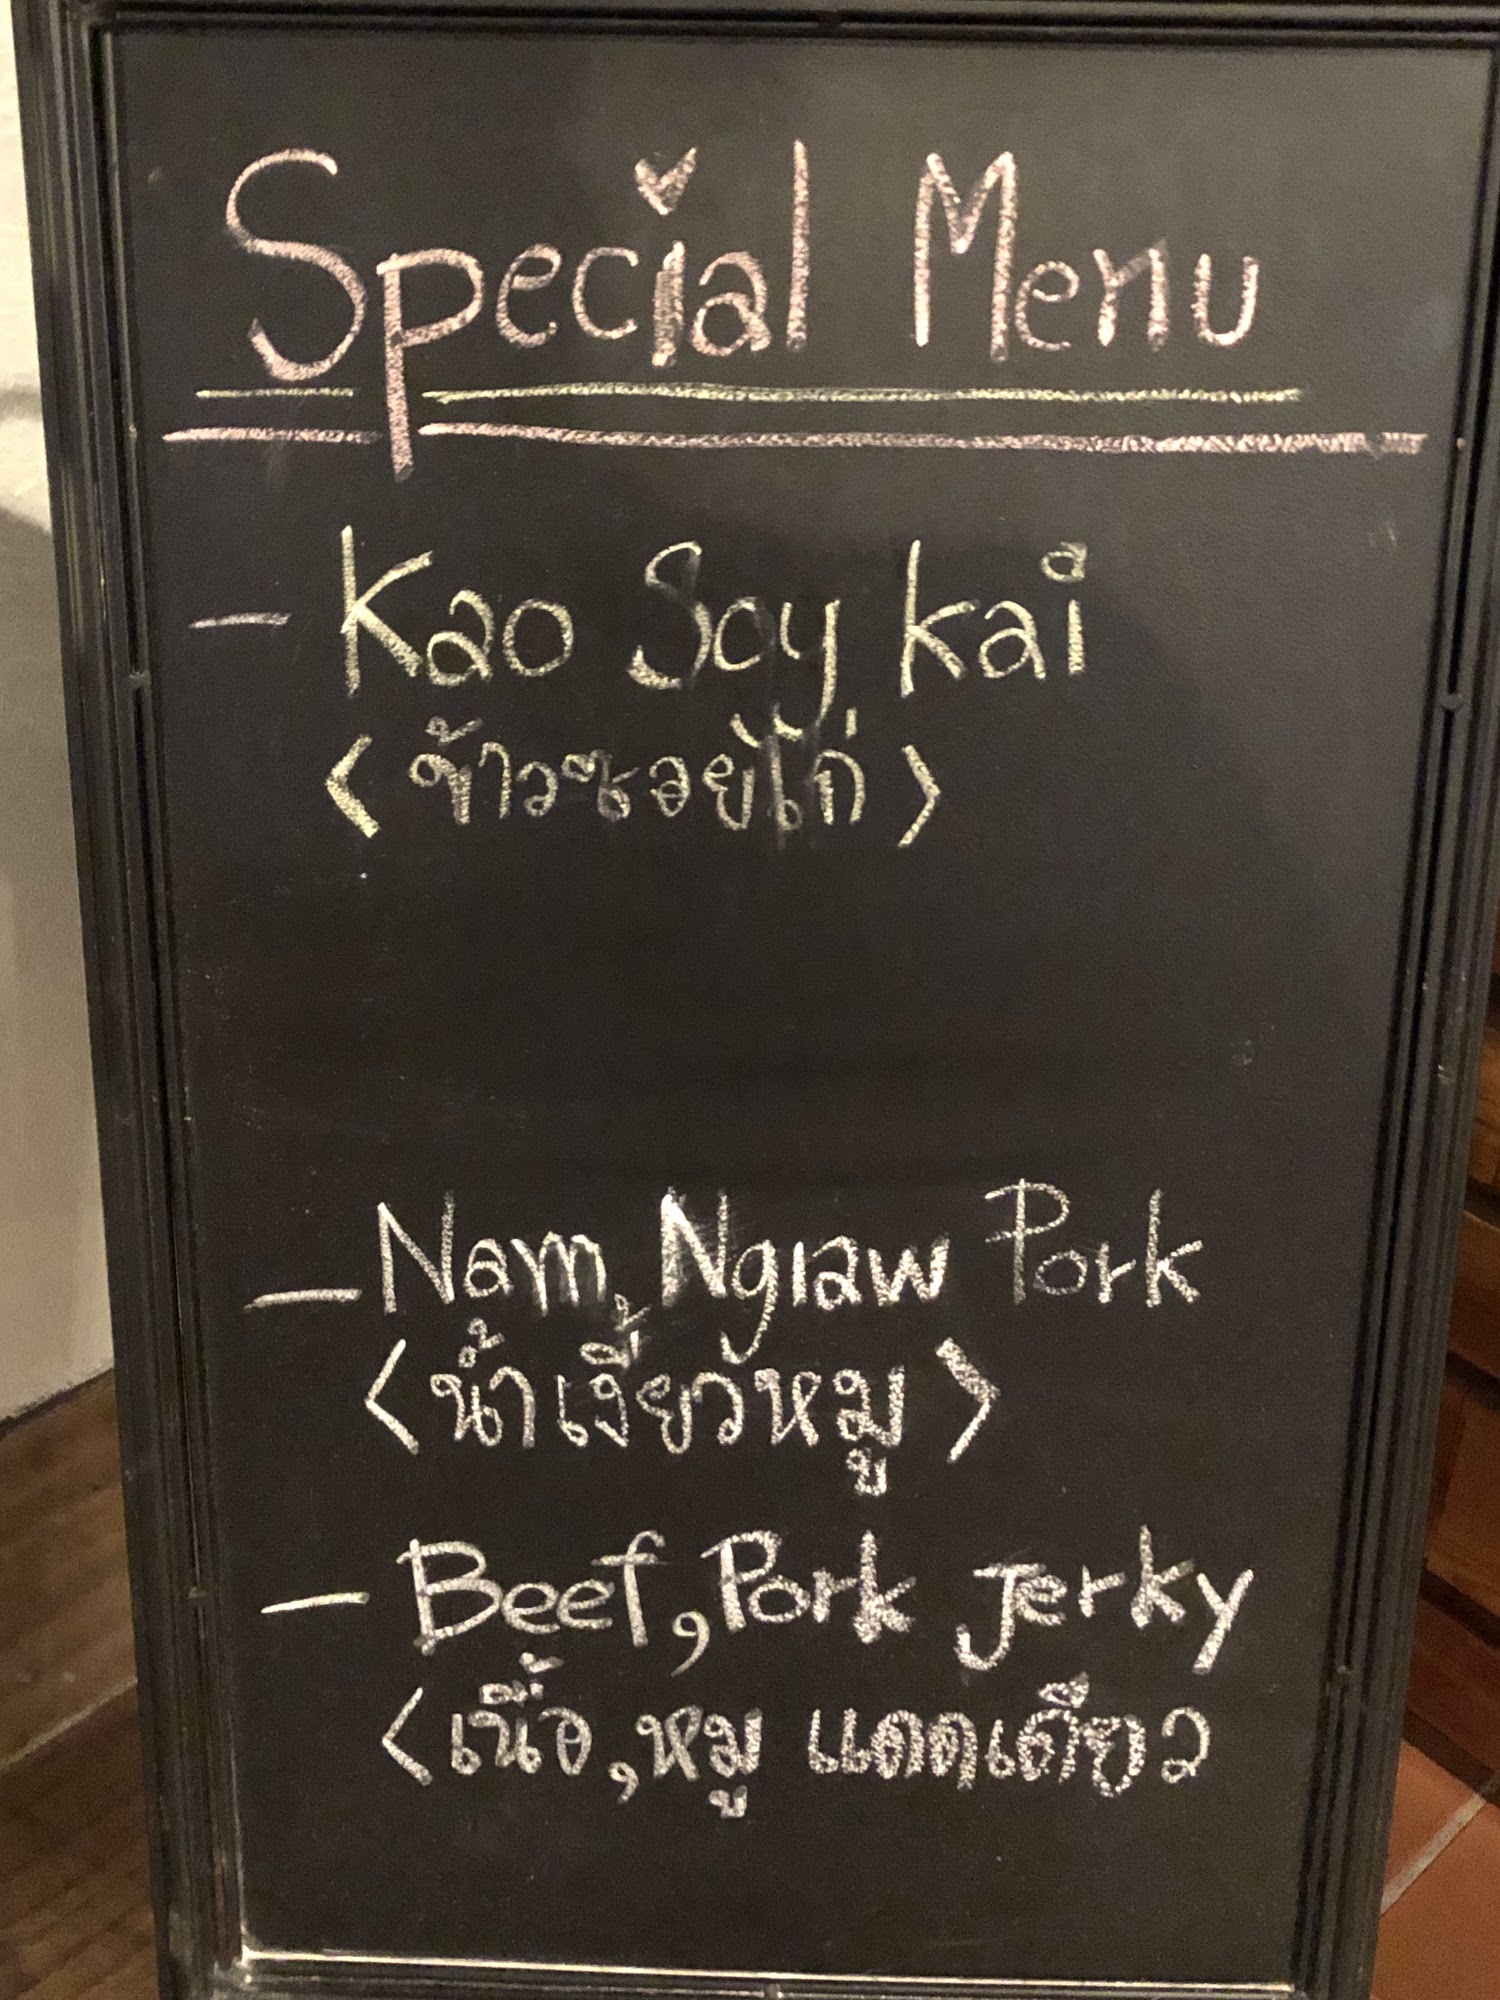 Special Menu
- Kao Soy Kai
< ข้าวซอยไก่ >
- Nam Ngiaw Pork
< น้ำเงี้ยวหมู >
- Beef, Pork Jerky
< เนื้อ, หมู แดดเดียว